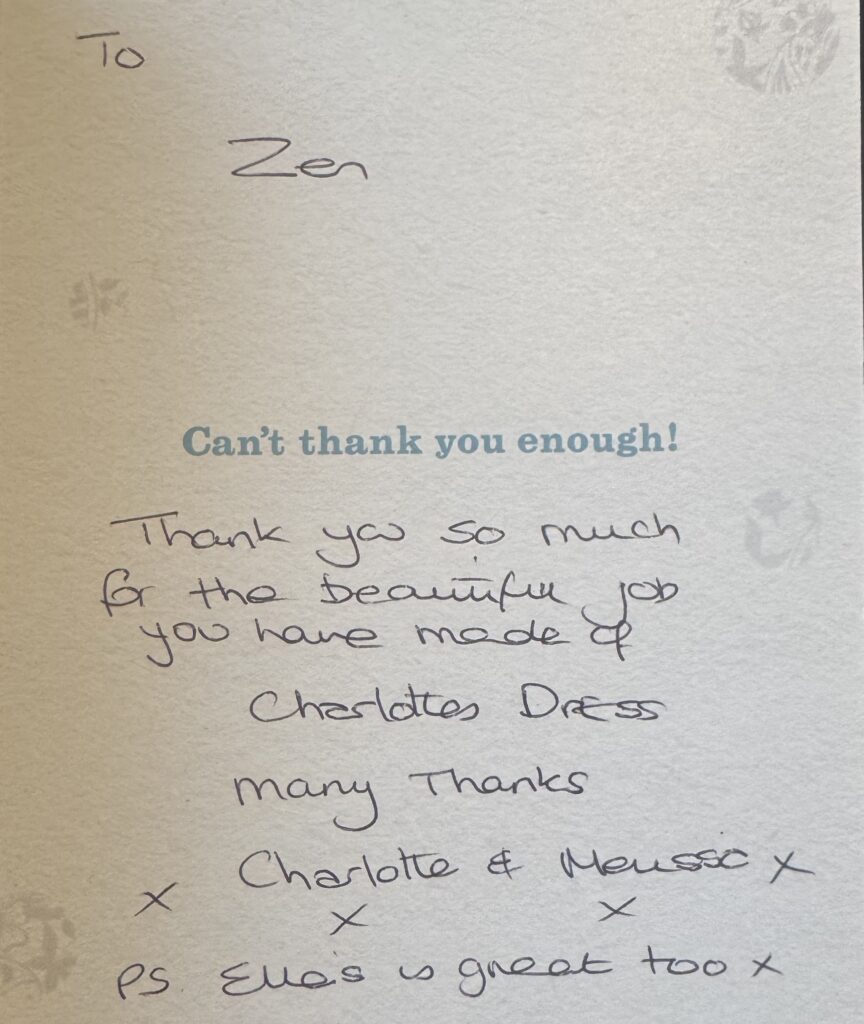 To
Zen
Can't thank you enough!
Thank you so much
for the beautiful job
you have made of
Charlottes Dress
many Thanks
Charlotte & Melissa x
x x x
PS. Ella's is great too x